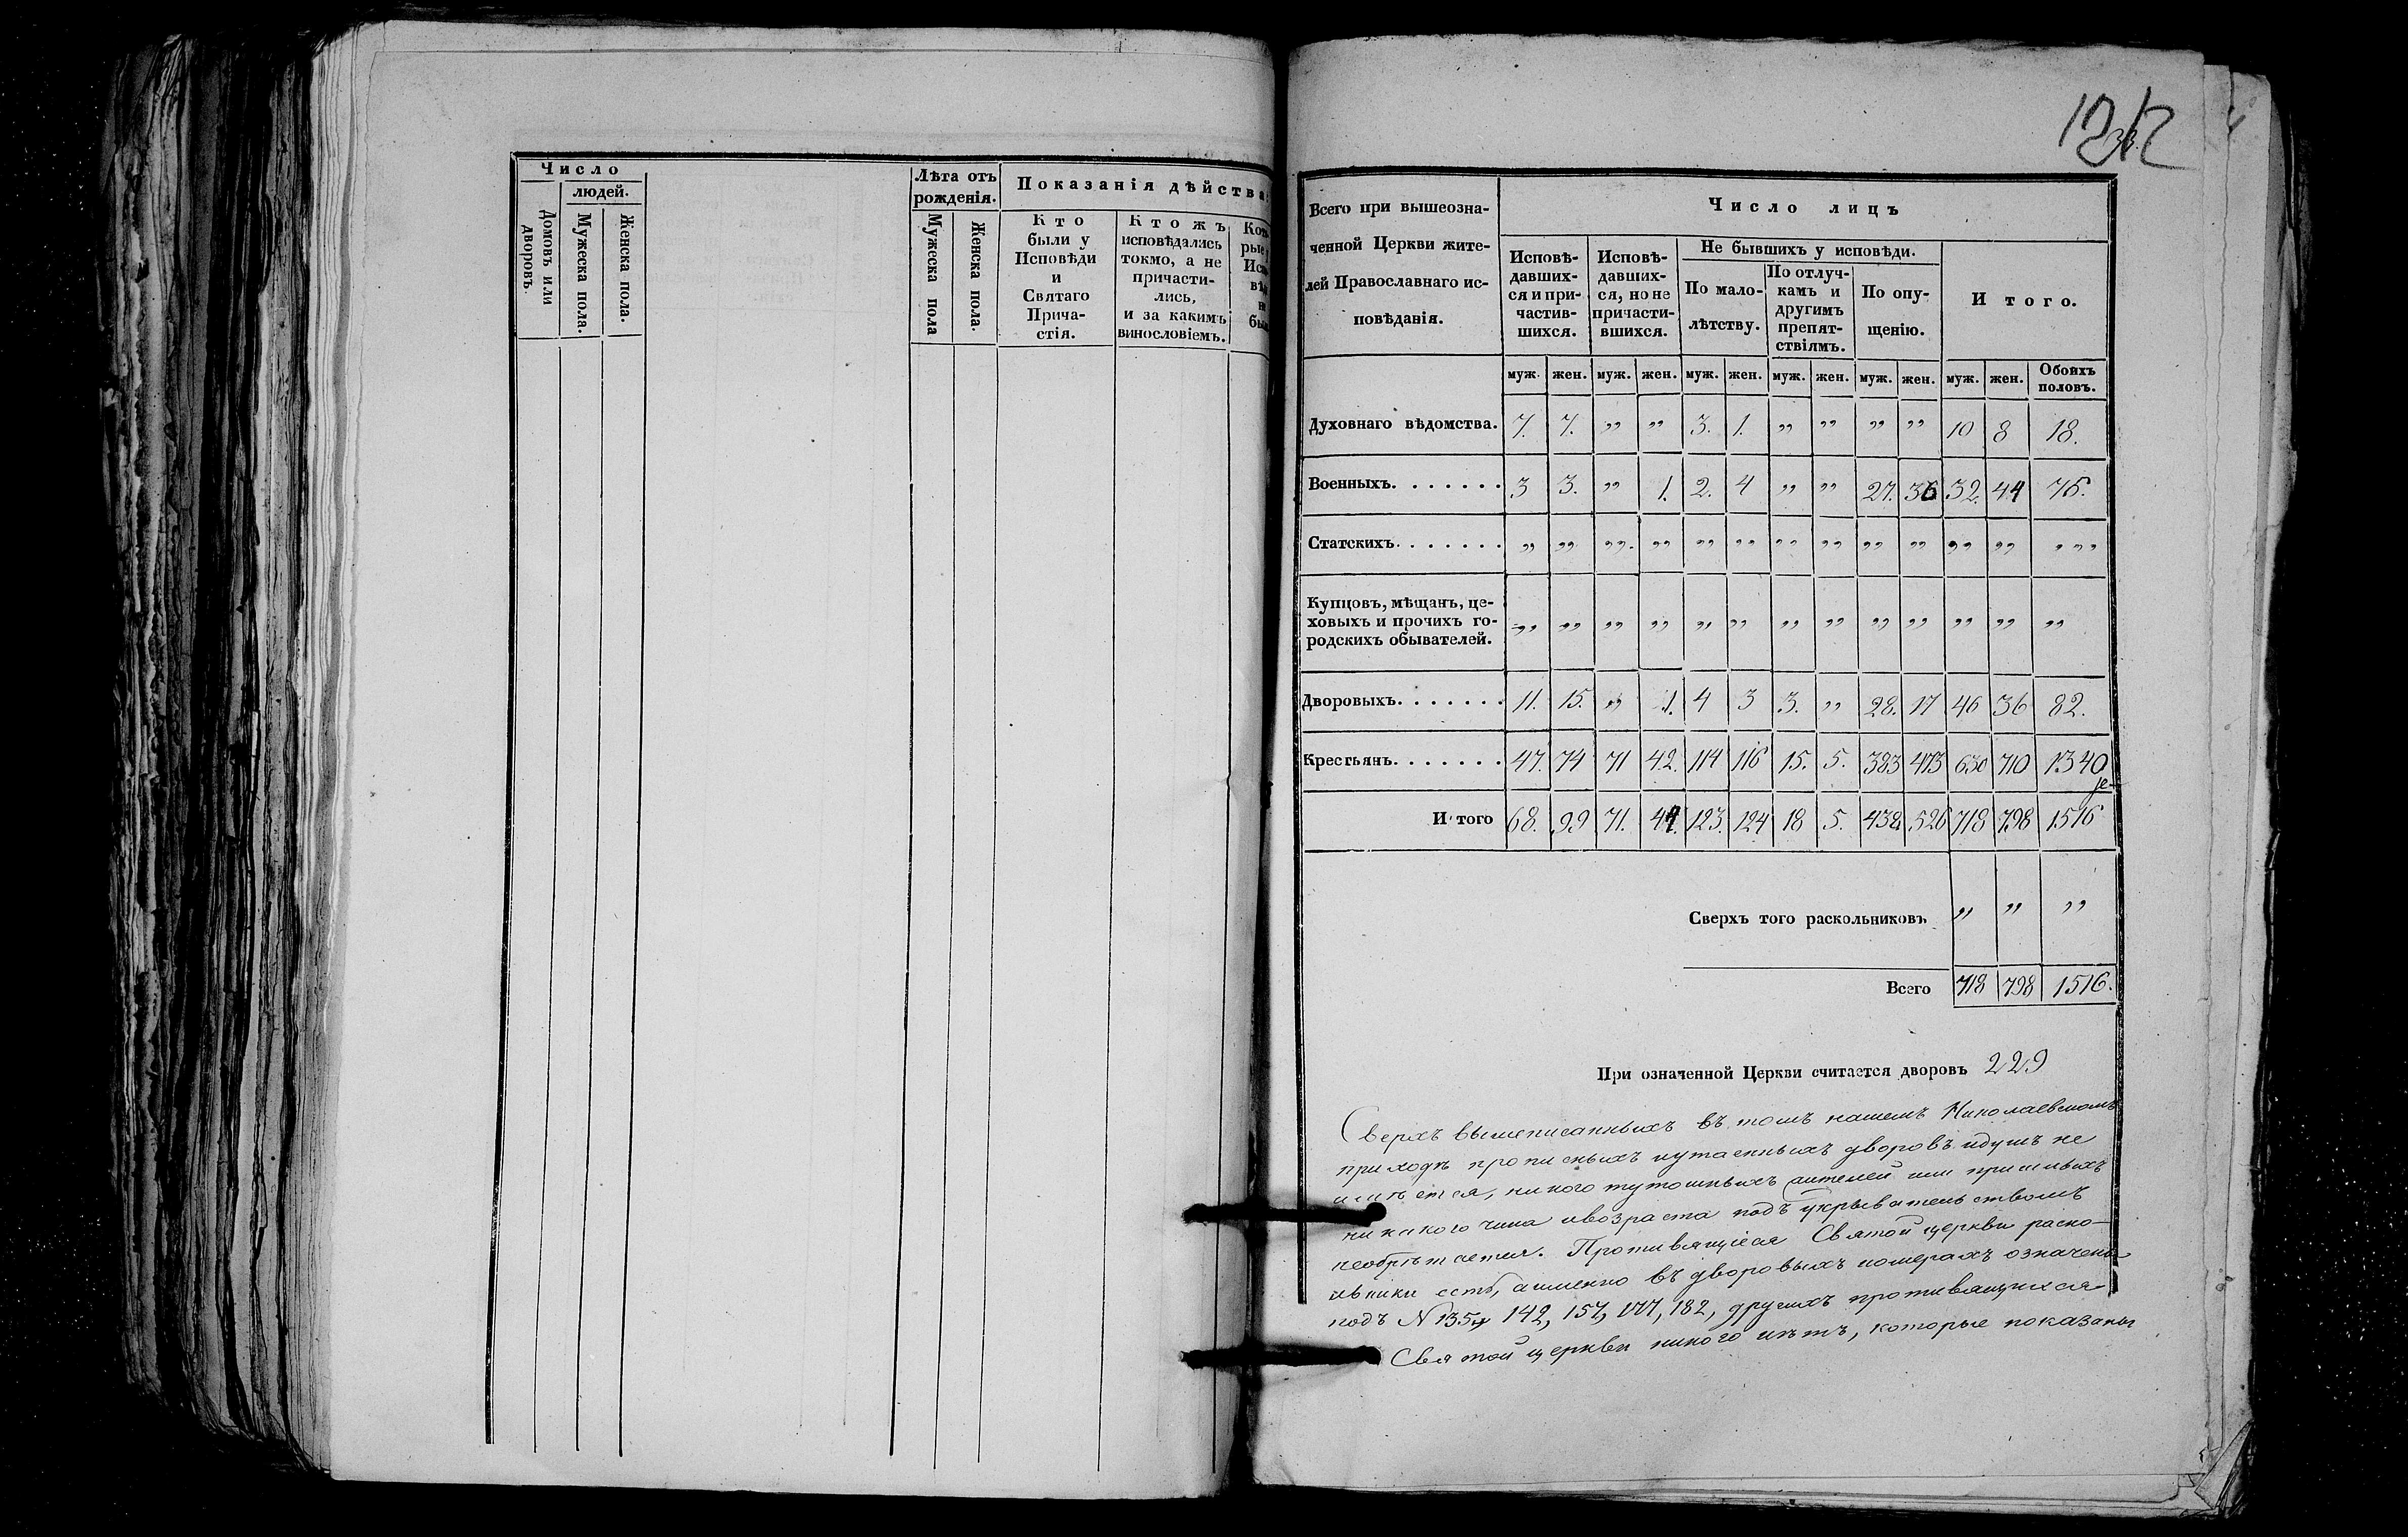 Число
людей.
Домовъ или дворовъ.
Мужеска пола.
Женска пола.
Лѣта отъ рожденія.
Мужеска пола
Женска пола.
Показанія дѣйства
Кто
были у
Исповѣди
и
Святаго
Прича-
стія.
Кто жъ
исповѣдались
токмо, а не
причасти-
лись,
и за какимъ
винословіемъ.
Всего при вышеозна-
ченной Церкви жите-
лей Православнаго ис-
повѣданія.
Число лицъ
Исповѣ-
давших-
ся и при-
частив-
шихся.
Исповѣ-
давших-
ся, но не
причасти-
вшихся.
Не бывшихъ у исповѣди.
По мало-
лѣтству.
По отлуч-
камъ и
другимъ
препят-
ствіямъ.
По опу-
щенію.
Итого.
муж. жен. муж. жен. муж. жен. муж. жен. муж. жен. муж. жен. Обоихъ половъ.
Духовнаго вѣдомства. 7. 7. „ „ 3. 1. „ „ „ „ 10 8 18.
Военныхъ. . . . . . . 3 3. „ 1. 2. 4 „ „ 27. 36 32. 44 76.
Статскихъ. . . . . . . „ „ „ „ „ „ „ „ „ „ „ „ „
Купцовъ, мѣщанъ, це-
ховыхъ и прочихъ го-
родскихъ обывателей. „ „ „ „ „ „ „ „ „ „ „ „ „
Дворовыхъ. . . . . . . 11. 15. „ 1. 4 3 3. „ 28. 17 46 36 82.
Крестьянъ. . . . . . . 47. 74 71 42. 114 116 15. 5. 383 473 630 710 1340
Итого 68. 99 71. 44. 123. 124 18 5. 438 526 718 798 1516
Сверхъ того раскольниковъ „ „ „
Всего 718 798 1516.
При означенной Церкви считается дворовъ 229
Сверхъ вышеписанныхъ въ томъ нашемъ Николаевскомъ
приходѣ прописныхъ и утаенныхъ дворовъ и душъ не
имѣется, никого тутошныхъ жителей или пришлыхъ
никакого чина и возраста подъ укрывательствомъ
необрѣтается. Противящіеся Святой церкви раско-
льники есть, а именно въ дворовыхъ номерахъ означены
подъ N 135, 142, 157, 177, 182, другихъ противящихся
Святой церкви никого нѣтъ, которые показаны